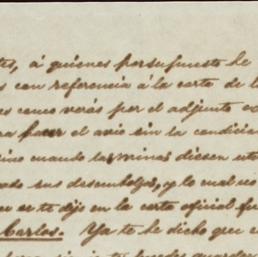 tes, á quienes por supuesto he
s con referencia á la carta de l
es como verás por el adjunto co
ra hacer el avio sin la condicio
ino cuando las minas diesen uti
odo sus desembolsos, y lo cual no
ue se te dijo en la carta oficial fu
Carlos. Ya te he dicho que e